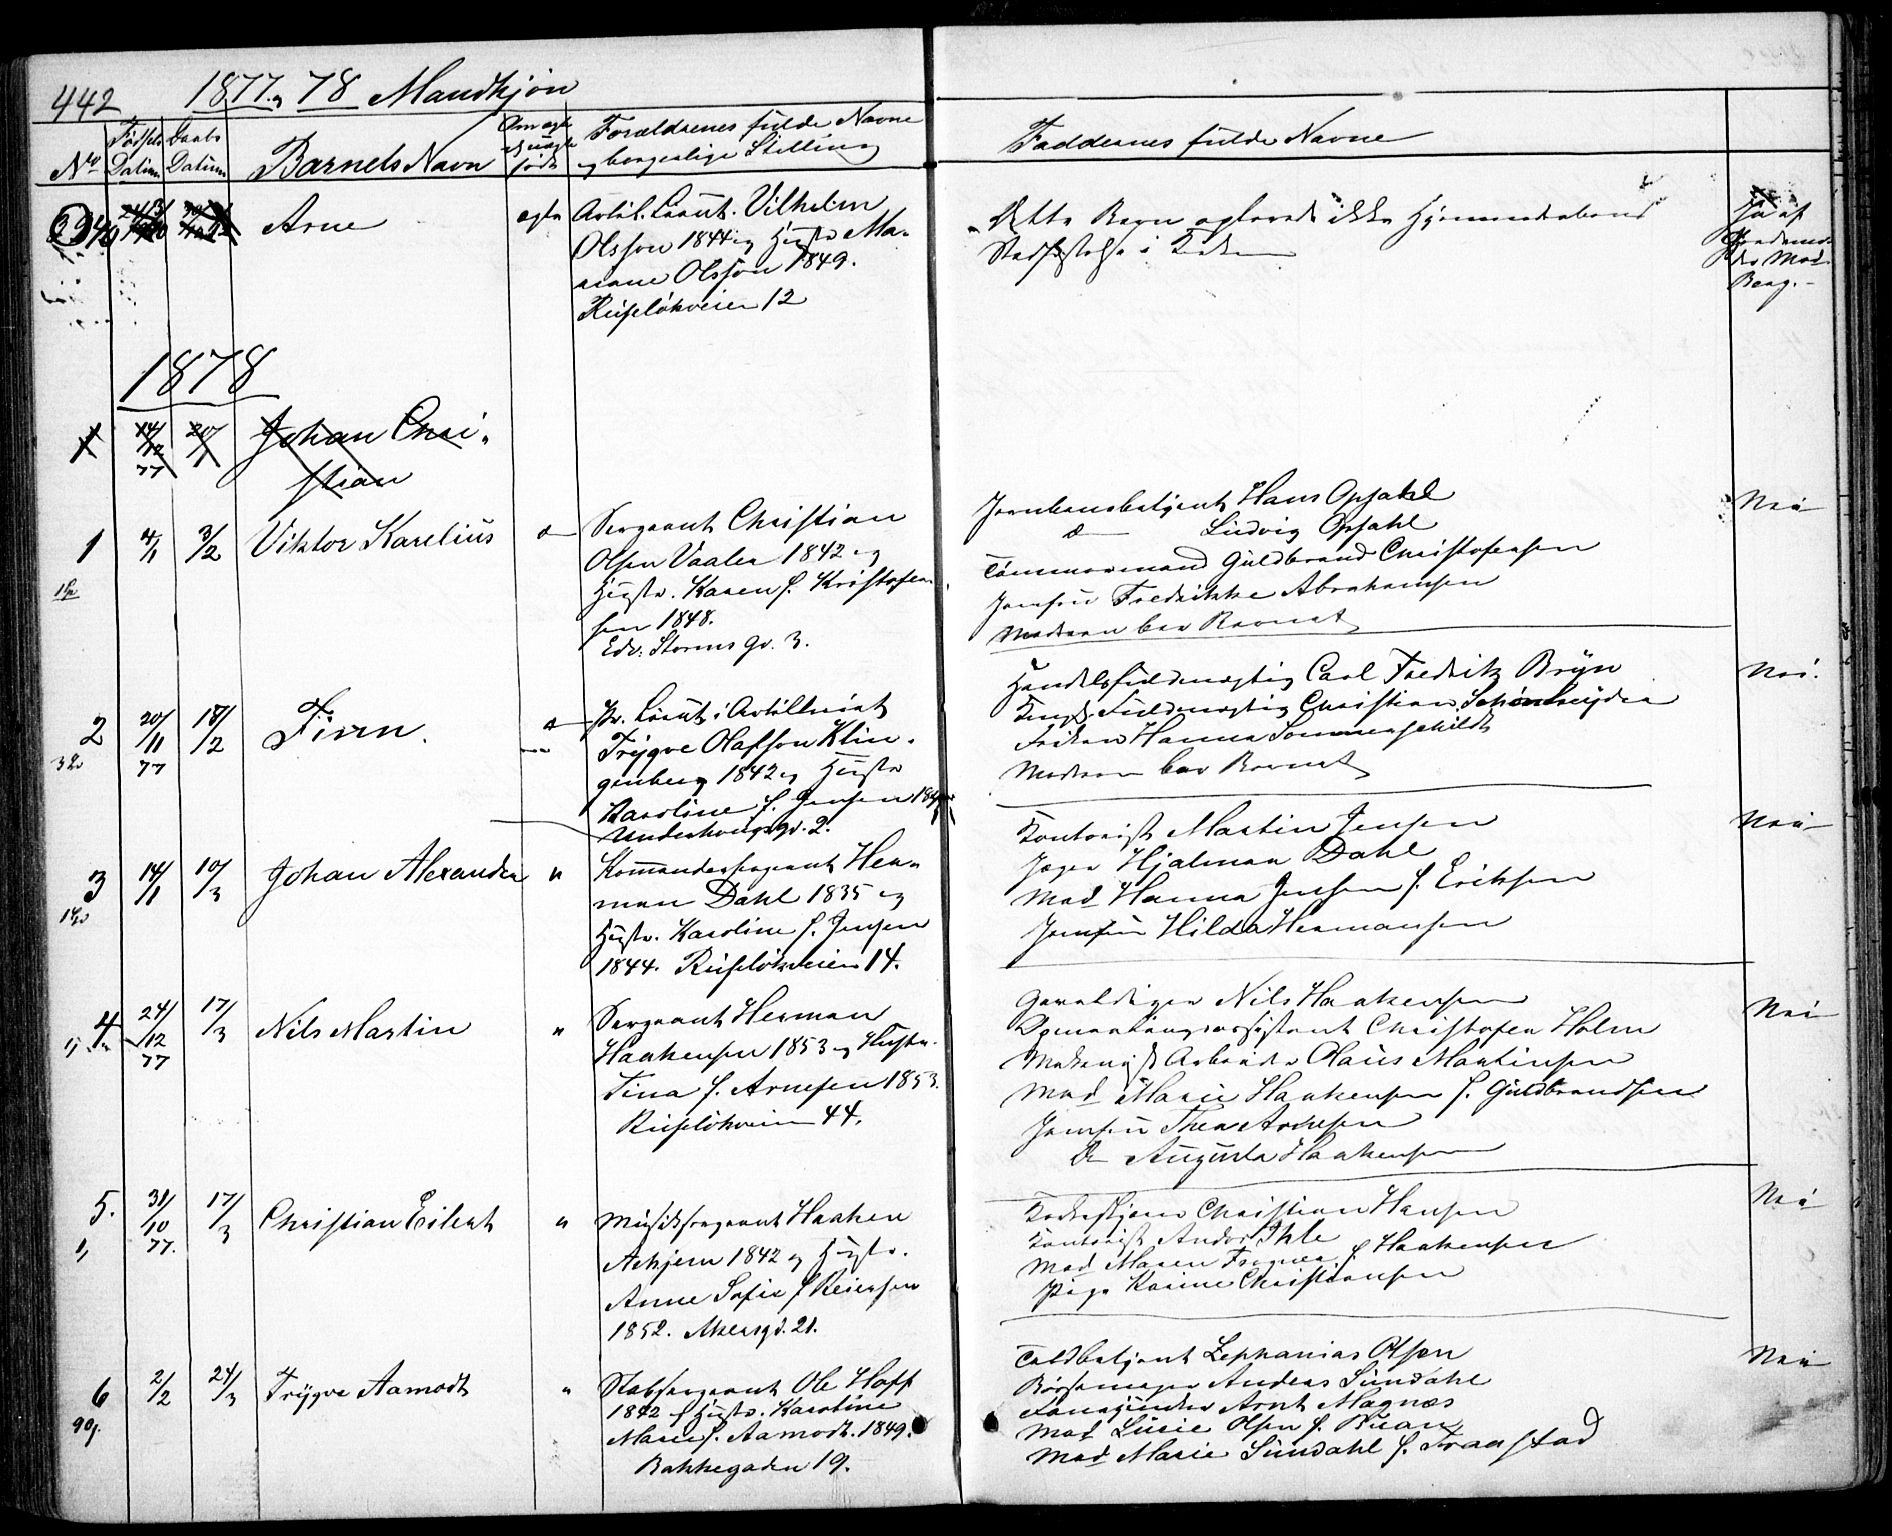 442 1877 og 78 Mandkjön
No Fødsels Datum Daabs Datum Barnets Navn Om ægte el. uægte født Forældrenes fulde Navne og borgerlige Stilling Faddernes fulde Navne
Arne ægte Artil. Lieut. Vilhelm
Olsson 1844 og Hustr. Ma-
riane Olsson 1849.
Ruseløkveien 12
Dette Barn oplevede ikke Hjemmedaabens
Stadfæstelse i Kirken
Ja af
Mad.
Berg.
1878
1 14/12 77 20/1 Johan Chri-
stian
1 4/1 3/2 Viktor Karelius
Sergeant Christian
Olsen Vaaler 1842 og
Hustr. Karen f. Kristofer-
sen 1848.
Edv. Storms gd. 3.
Jernbanebetjent Hans Opsahl
do Ludvig Opsahl
Tømmermand Guldbrand Christofersen
Jomfru Fredrikke Abrahamsen
Moderen bar Barnet
Nei
2 20/11 77 18/2 Finn.
Pr. Lieut. i Artilleriet
Trygve Olafson Klin-
genberg 1842 og Hustr.
Karoline f. Jensen
Underhougsgd. 2.
Handelsfuldmægtig Carl Fredrik Bryn
Fuldmægtig Christian Schönheyder
Frøken Hanna Sommerschildt
Moderen bar Barnet
Nei.
3 14/1 10/3 Johan Alexander "
Kommandersergeant Her-
man Dahl 1835 og
Hustr. Karoline f. Jensen
1844. Ruseløkveien 14.
Kontorist Martin Jensen
Jæger Hjalmar Dahl
Mad Hanna Jensen f. Eriksen
Jomfru Hilda Hermansen
Nei
4 24/12 77 17/3 Nils Martin "
Sergeant Herman
Haakensen 1853 og Hustr.
Tina f. Arnesen 1853.
Ruseløkveien 44.
Gevaldiger Nils Haakensen
Opmaalingsassistent Christofer Holm
Arbeider Olaus Martinsen
Mad Marie Haakensen f. Guldbrandsen
Jomfru Thea Arnesen
do Augusta Haakensen
Nei
5. 31/10 77. 17/3 Christian Eilert "
Musiksergeant Haaken
Askjem 1842 og Hustr.
Anne Sofie f Reiersen
1852. Akersgd. 21.
Christian Hansen
Kontorist Andor Ihle
Mad Maren Frogner f Haakensen
Pige Karine Christiansen
Nei
6 2/2 24/3 Trygve Aamodt "
Stabsergeant Ole Hoff
1842 og Hustr. Karoline
Marie f. Aamodt. 1849.
Bakkegaden 19.
Toldbetjent Zephanias Olsen
Børsemager Anders Sundahl
Arnt Magnæs
Mad Lucie Olsen f. Buan
Mad Marie Sundahl f. Traastad
Nei